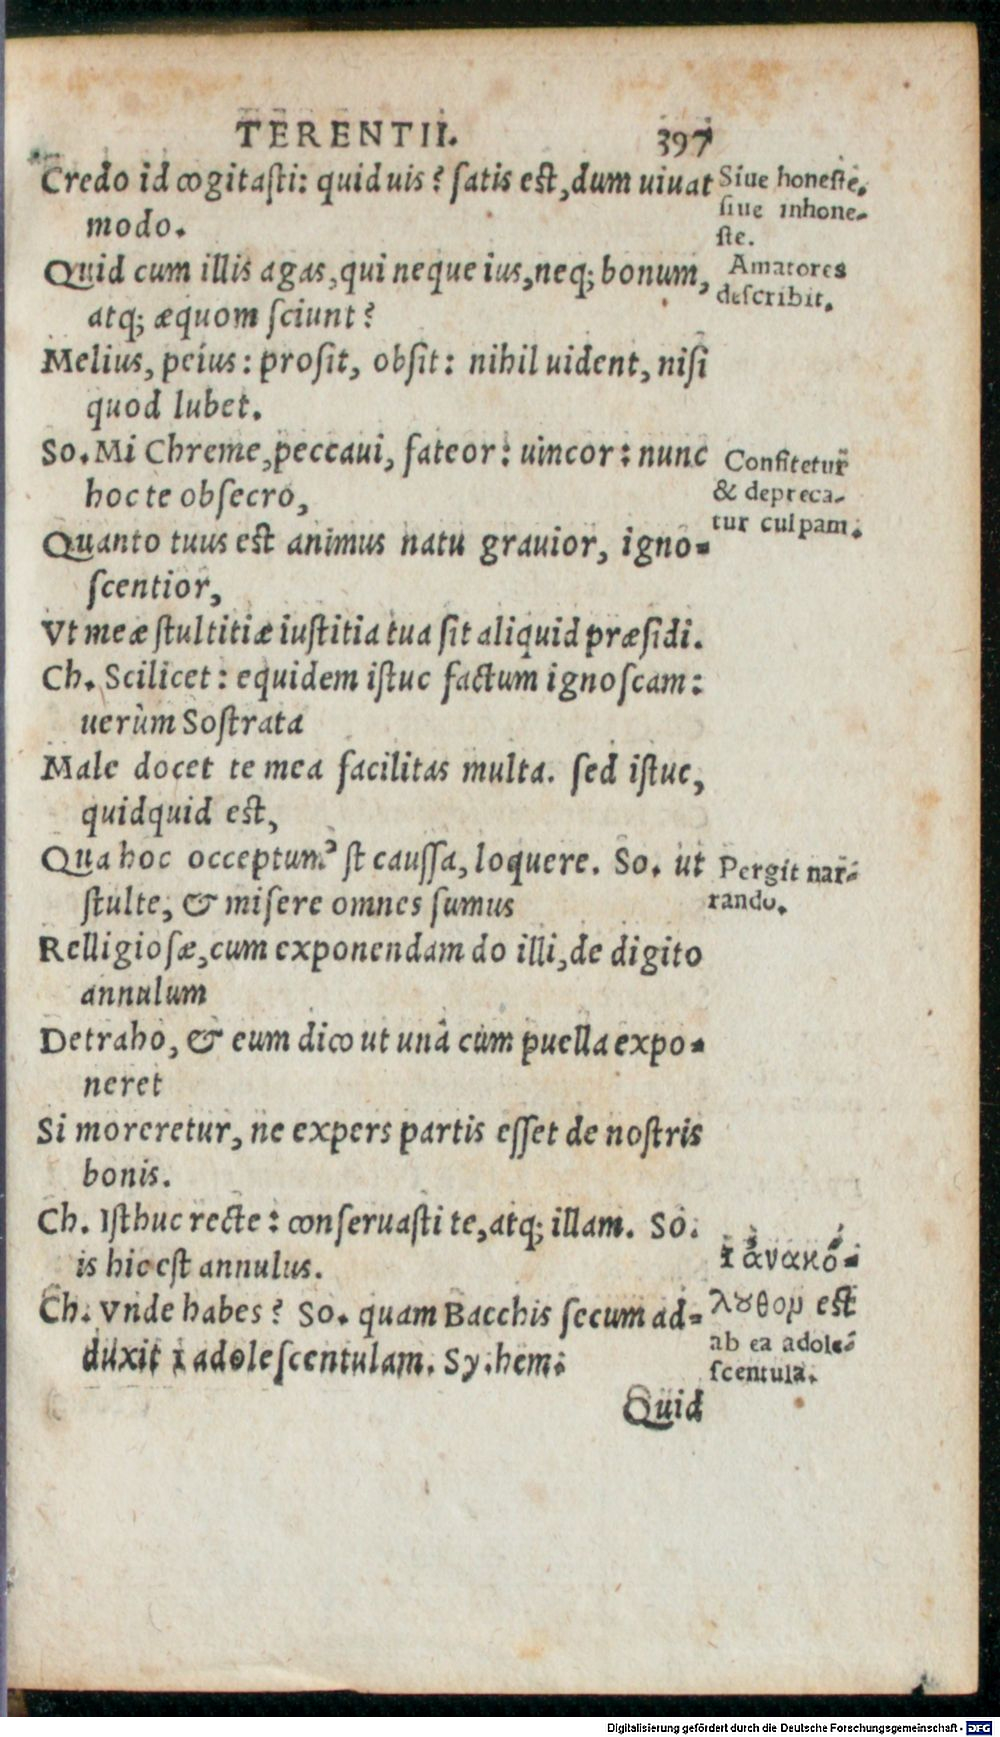 TERENTII. 397
Credo id cogitasti: quid uis? satis est, dum uiuat
modo.
Quid cum illis agas, qui neque ius, neq; bonum,
atq; æquom sciunt?
Melius, peius: prosit, obsit: nihil uident, nisi
quod lubet.
So. Mi Chreme, peccaui, fateor: uincor: nunc
hoc te obsecro,
Quanto tuus est animus natu grauior, igno-
scentior,
Vt meæ stultitiæ iustitia tua sit aliquid præsidi.
Ch. Scilicet: equidem istuc factum ignoscam:
uerùm Sostrata
Male docet te mea facilitas multa. sed istuc,
quidquid est,
Qua hoc occeptum'st caussa, loquere. So. ut
stulte, & misere omnes sumus
Relligiosæ, cum exponendam do illi, de digito
annulum
Detraho, & eum dico ut unâ cum puella expo-
neret
Si moreretur, ne expers partis esset de nostris
bonis.
Ch. Isthuc recte: conseruasti te, atq; illam. So.
is hic est annulus.
Ch. Vnde habes? So. quam Bacchis secum ad-
duxit 1 adolescentulam. Sy. hem:
Quid
Siue honeste,
siue inhone-
ste.
Amatores
describit.
Confitetur
& depreca-
tur culpam.
Pergit nar-
rando.
1 ἀνακό-
λουθον est
ab ea adole-
scentula.
Digitalisierung gefördert durch die Deutsche Forschungsgemeinschaft - DFG